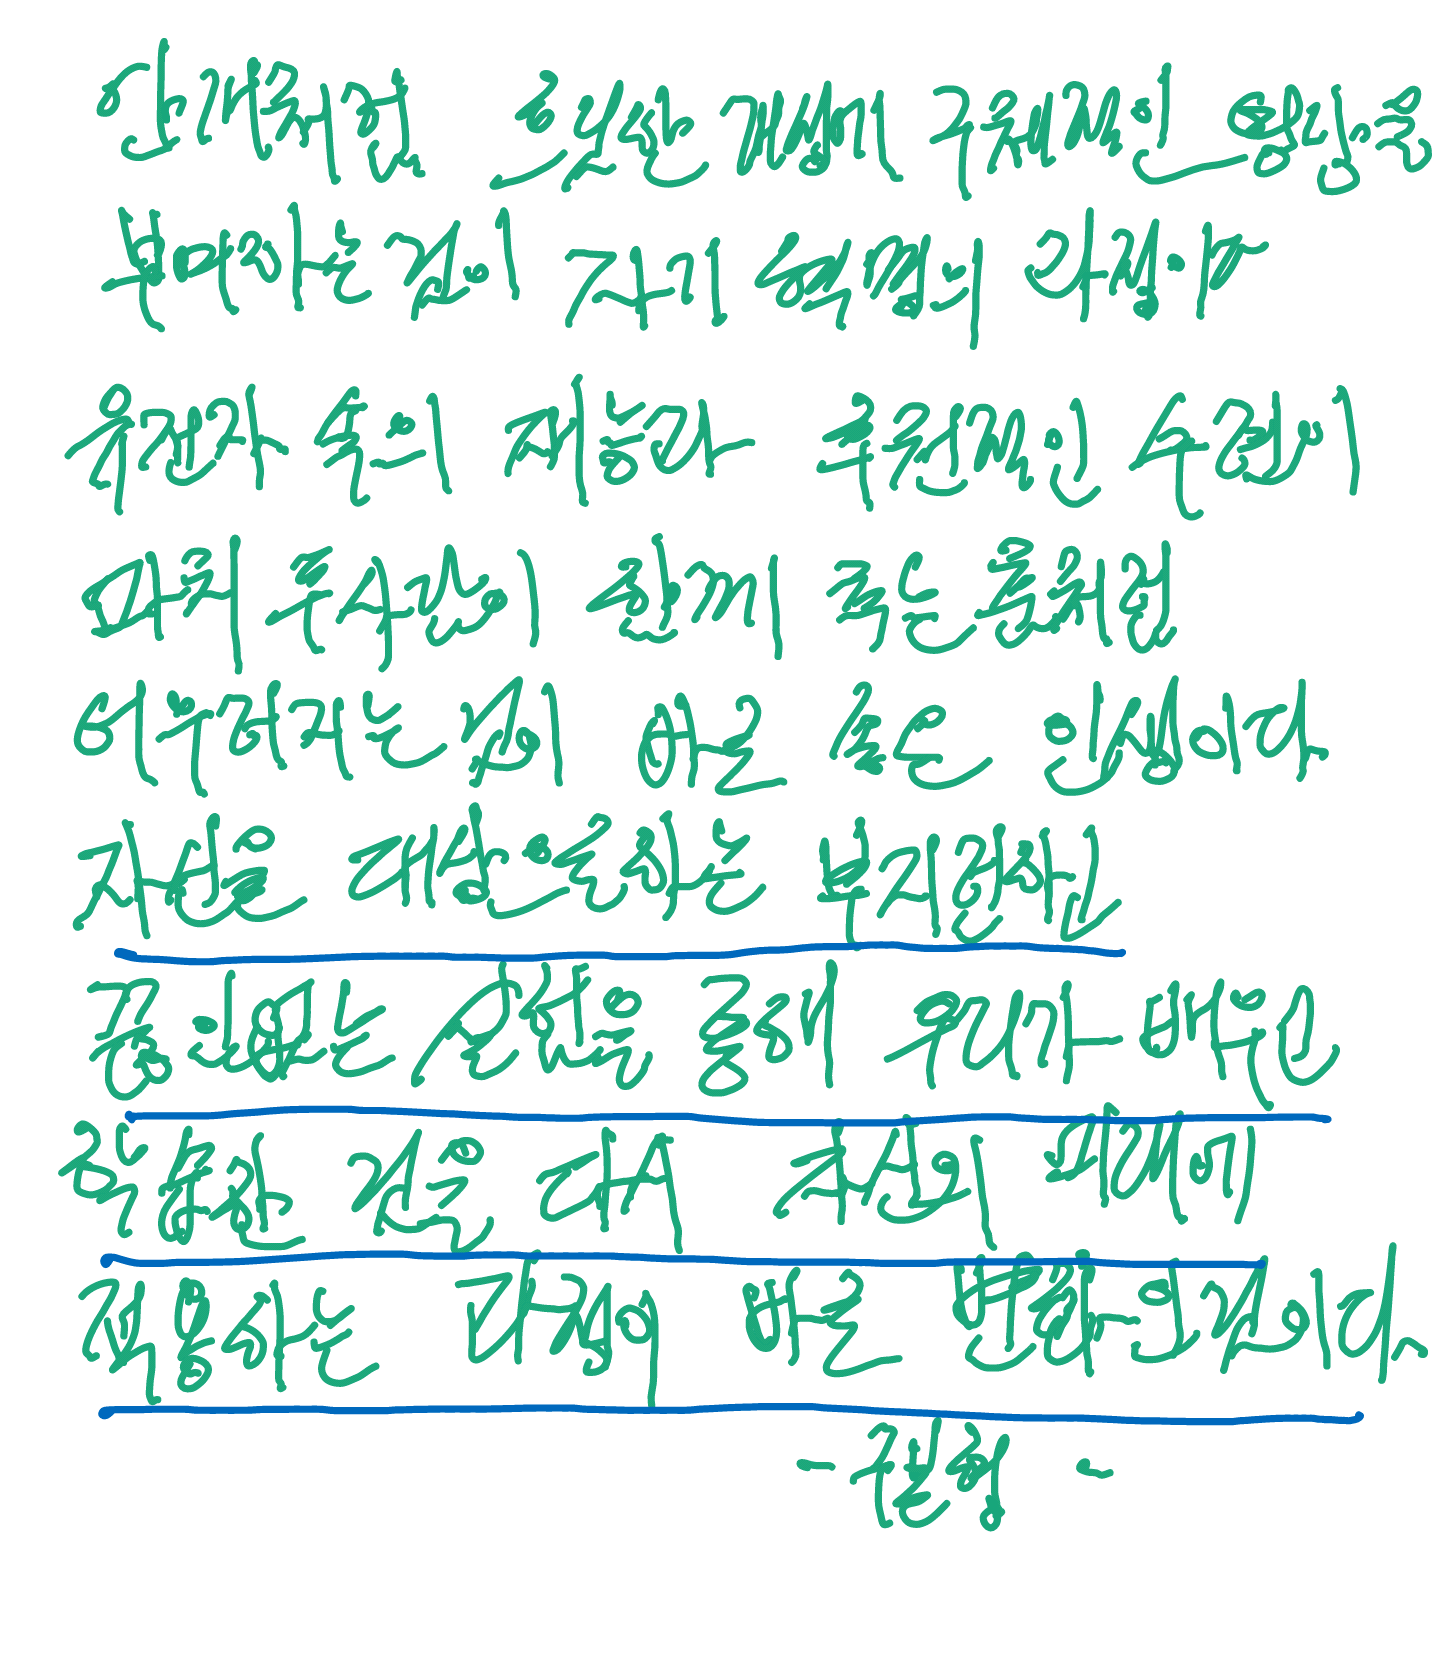 안개처럼 희박한 개성에 구체적인 형상을
부여하는 것이 자기 혁명의 과정이야
유전자 속의 재능과 후천적인 수련이
마치 두사람이 함께 추는 춤처럼
어우러지는 것이 바로 좋은 인생이다
자신을 대상으로하는 부지런한
끊임없는 실험을 통해 우리가 배운
학습한 것을 다시 자신의 미래에
적용하는 과정이 바로 변화인것이다.